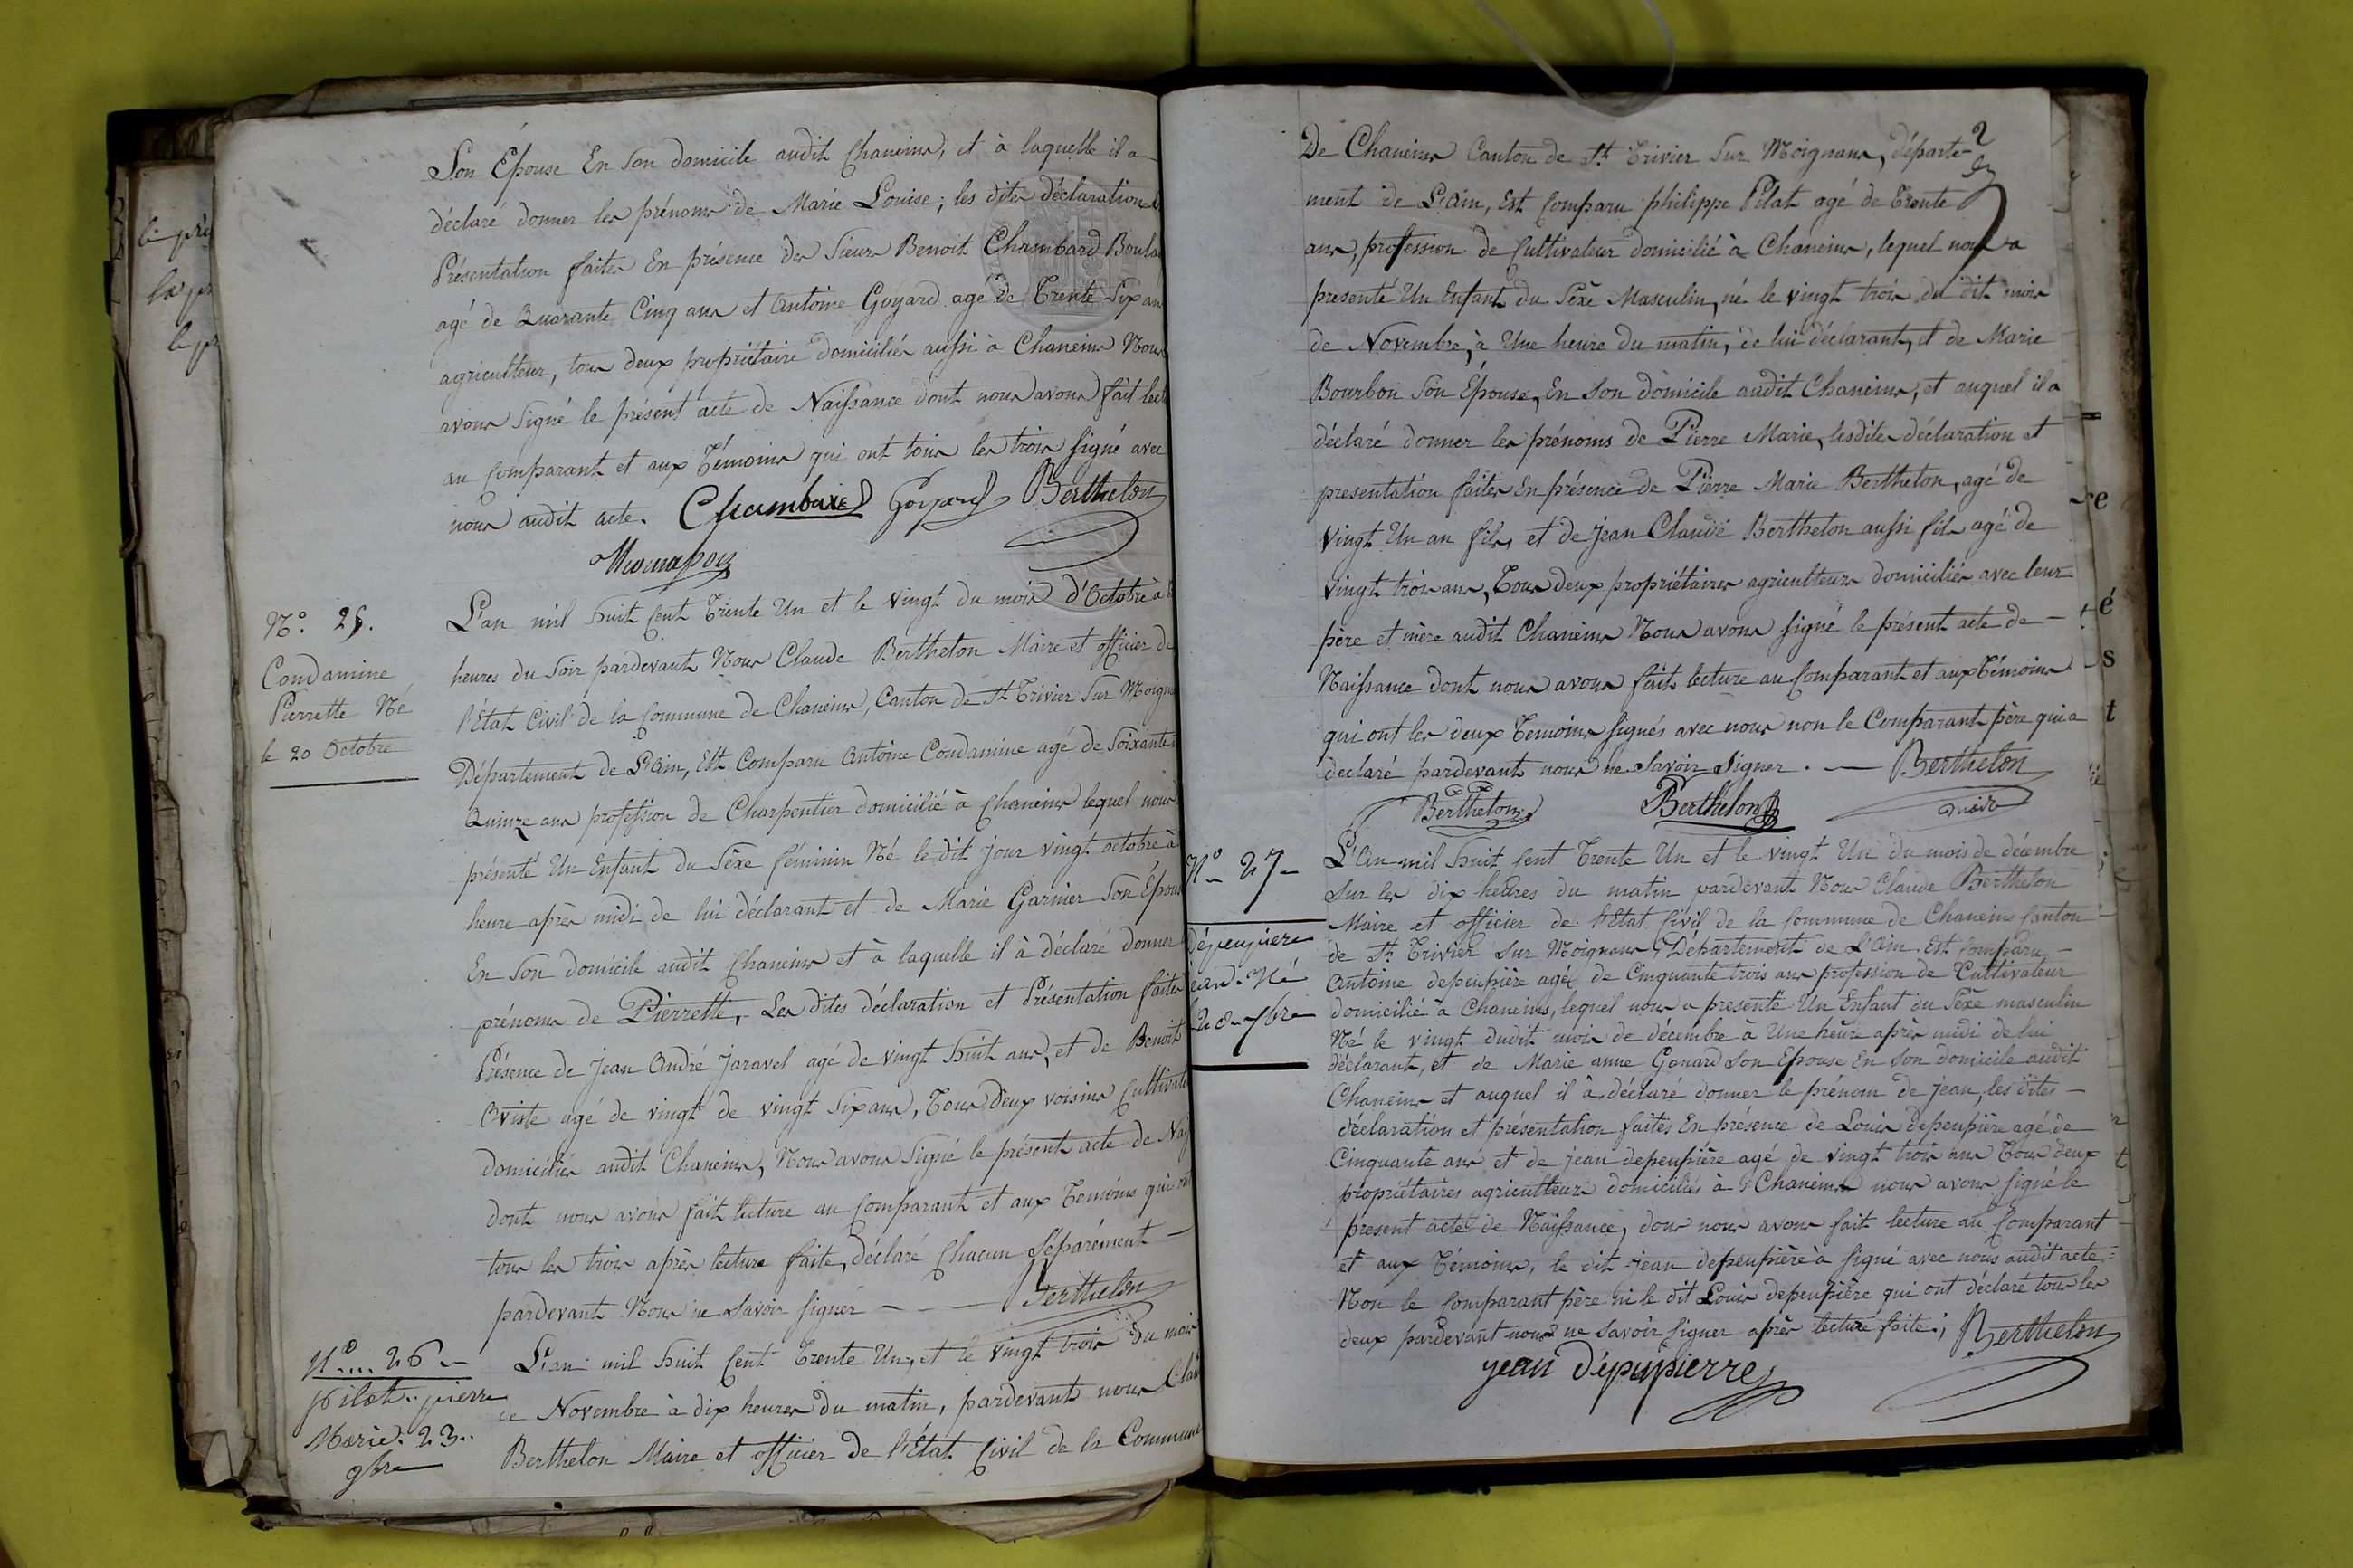 Son Épouse En Son domicile audit Chaneins, et à laquelle il a
déclaré donner les prénoms de Marie Louise ; les dites déclaration &
Présentation faites En présence des Sieurs Benoit Chambard
agé de Quarante Cinq ans et Antoine Goyard agé de Trente Six ans
agriculteur, tous deux propriétaire domiciliés aussi à Chaneins Nous
avons Signé le présent acte de Naissance dont nous avons fait lect
au Comparant et aux Témoins qui ont tous les trois Signé avec
nous audit acte. Chambard Goyard Berthelon
N°. 25.
Condamine
Pierrette Né
le 20 Octobre
L'an mil huit Cent Trente Un et le vingt du mois d'Octobre à
heures du Soir pardevant Nous Claude Berthelon Maire et officier de
l'État Civil de la Commune de Chaneins, Canton de St Trivier Sur Moign
Département de L'Ain, Est Comparu Antoine Condamine agé de Soixante
Quinze ans profession de Charpentier domicilié à Chaneins lequel nous
présenté Un Enfant du Sèxe féminin Né le dit jour vingt octobre à
heure après midi de lui déclarant et de Marie Garnier Son Épous
En Son domicile audit Chaneins et à laquelle il à déclaré donner
prénoms de Pierrette, Les dites déclaration et Présentation faites
Présence de Jean André Jaravel agé de vingt huit ans, et de Benoit
Oviste agé de vingt de vingt Six ans, Tous deux voisins Cultivate
domiciliés audit Chaneins, Nous avons Signé le présent acte de Nais
dont nous avons fait lecture au Comparant et aux Temoins qui ont
tous les trois après lecture faite, déclaré Chacun Séparément —
pardevant Nous ne Savoir Signer — — Berthelon
N°... 26 —
pilat.. pierre
Marie. 23..
9bre
L'an mil huit Cent Trente Un, et le vingt trois du mois
de Novembre à dix heures du matin, pardevant nous Clau
Berthelon Maire et officier de l'État Civil de la Commune
De Chaneins Canton de St Trivier Sur Moignans, départe-
ment de L'Ain, Est Comparu philippe Pilat agé de Trente
ans, profession de Cultivateur domicilié à Chaneins, lequel nous a
presenté Un Enfant du Sèxe Masculin, né le vingt trois du dit mois
de Novembre, à Une heure du matin, de lui déclarant, et de Marie
Bourbon Son Épouse, En Son domicile audit Chaneins, et auquel il a
déclaré donner les prénoms de Pierre Marie, lesdites déclaration et
presentation faites En présence de Pierre Marie Berthelon, agé de
vingt Un an fils, et de Jean Claude Berthelon aussi fils agé de
vingt trois ans, Tous deux propriétaires agriculteurs domiciliés avec leur
père et mère audit Chaneins Nous avons Signé le présent acte de —
Naissance dont nous avons fait lecture au Comparant et aux Témoins
qui ont les deux Temoins Signés avec nous non le Comparant père qui a
declaré pardevant nous ne Savoir Signer. — Berthelon
Berthelon Berthelon maire
N° 27 —
dépeupiere
jean. Né
L'An mil huit Cent Trente Un et le vingt Un du mois de décembre
Sur les dix heures du matin pardevant Nous Claude Berthelon
Maire et officier de l'Etat Civil de la Commune de Chaneins Canton
de St Trivier Sur Moignans, Département de L'Ain. Est Comparu —
Antoine depeupière agé de Cinquante trois ans profession de Cultivateur
domicilié à Chaneins, lequel nous a presenté Un Enfant du Sèxe masculin
Né le vingt dudit mois de décembre à Une heure après midi de lui
déclarant, et de Marie anne Gonard Son Epouse En Son domicile audit
Chaneins et auquel il à déclaré donner le prénom de Jean, les dites —
déclaration et présentation faites En présence de Louis depeupière agé de
Cinquante ans et de Jean depeupière agé de vingt trois ans Tous deux
propriétaires agriculteurs domiciliés à Chaneins nous avons Signé le
present acte de Naissance, dont nous avons fait lecture au Comparant
et aux Témoins, le dit Jean depeupière à Signé avec nous audit acte
Non le Comparant père ni le dit Louis depeupière qui ont déclaré tous les
deux pardevant nous ne Savoir Signer après lecture faite. ; Berthelon
jean dépeupierre